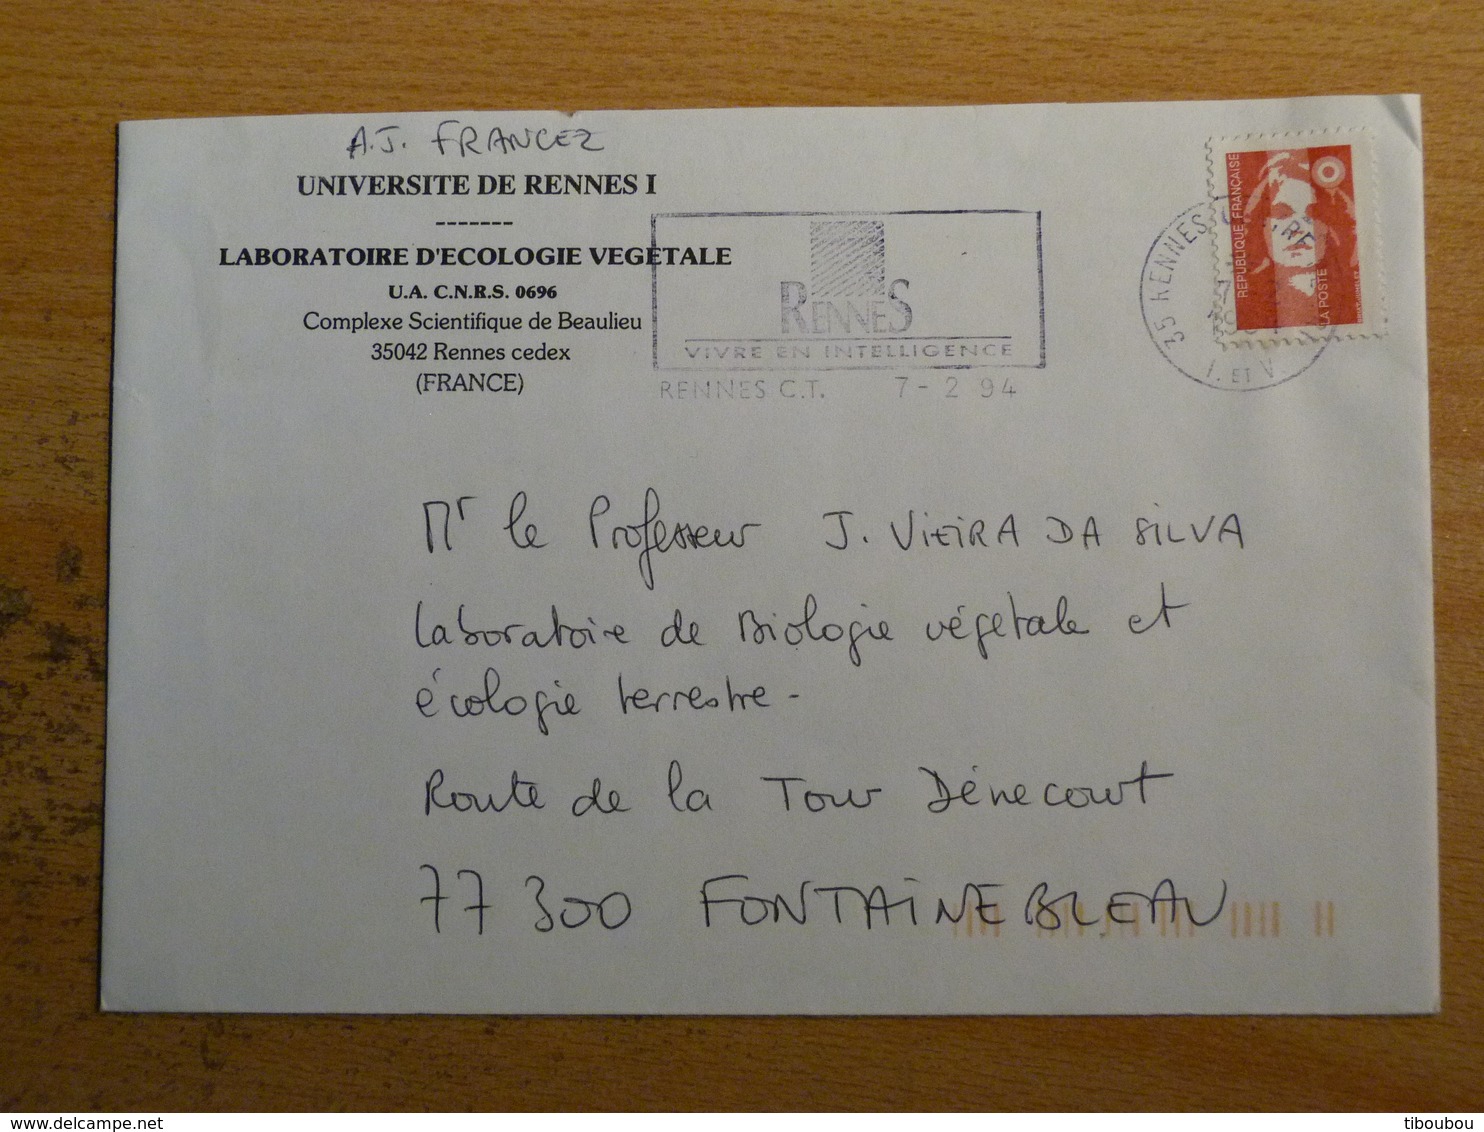 A.J. FRANCEZ
UNIVERSITE DE RENNES I
-------
LABORATOIRE D'ECOLOGIE VEGETALE
U.A. C.N.R.S. 0696
Complexe Scientifique de Beaulieu
35042 Rennes cedex
(FRANCE)
RENNES
VIVRE EN INTELLIGENCE
RENNES C.T. 7-2 94
35 RENNES
ET V
REPUBLIQUE FRANÇAISE
LA POSTE
Mr le Professeur J. VIEIRA DA SILVA
Laboratoire de Biologie végétale et
écologie terrestre -
Route de la Tour Dénecourt
77300 FONTAINEBLEAU
tiboubou